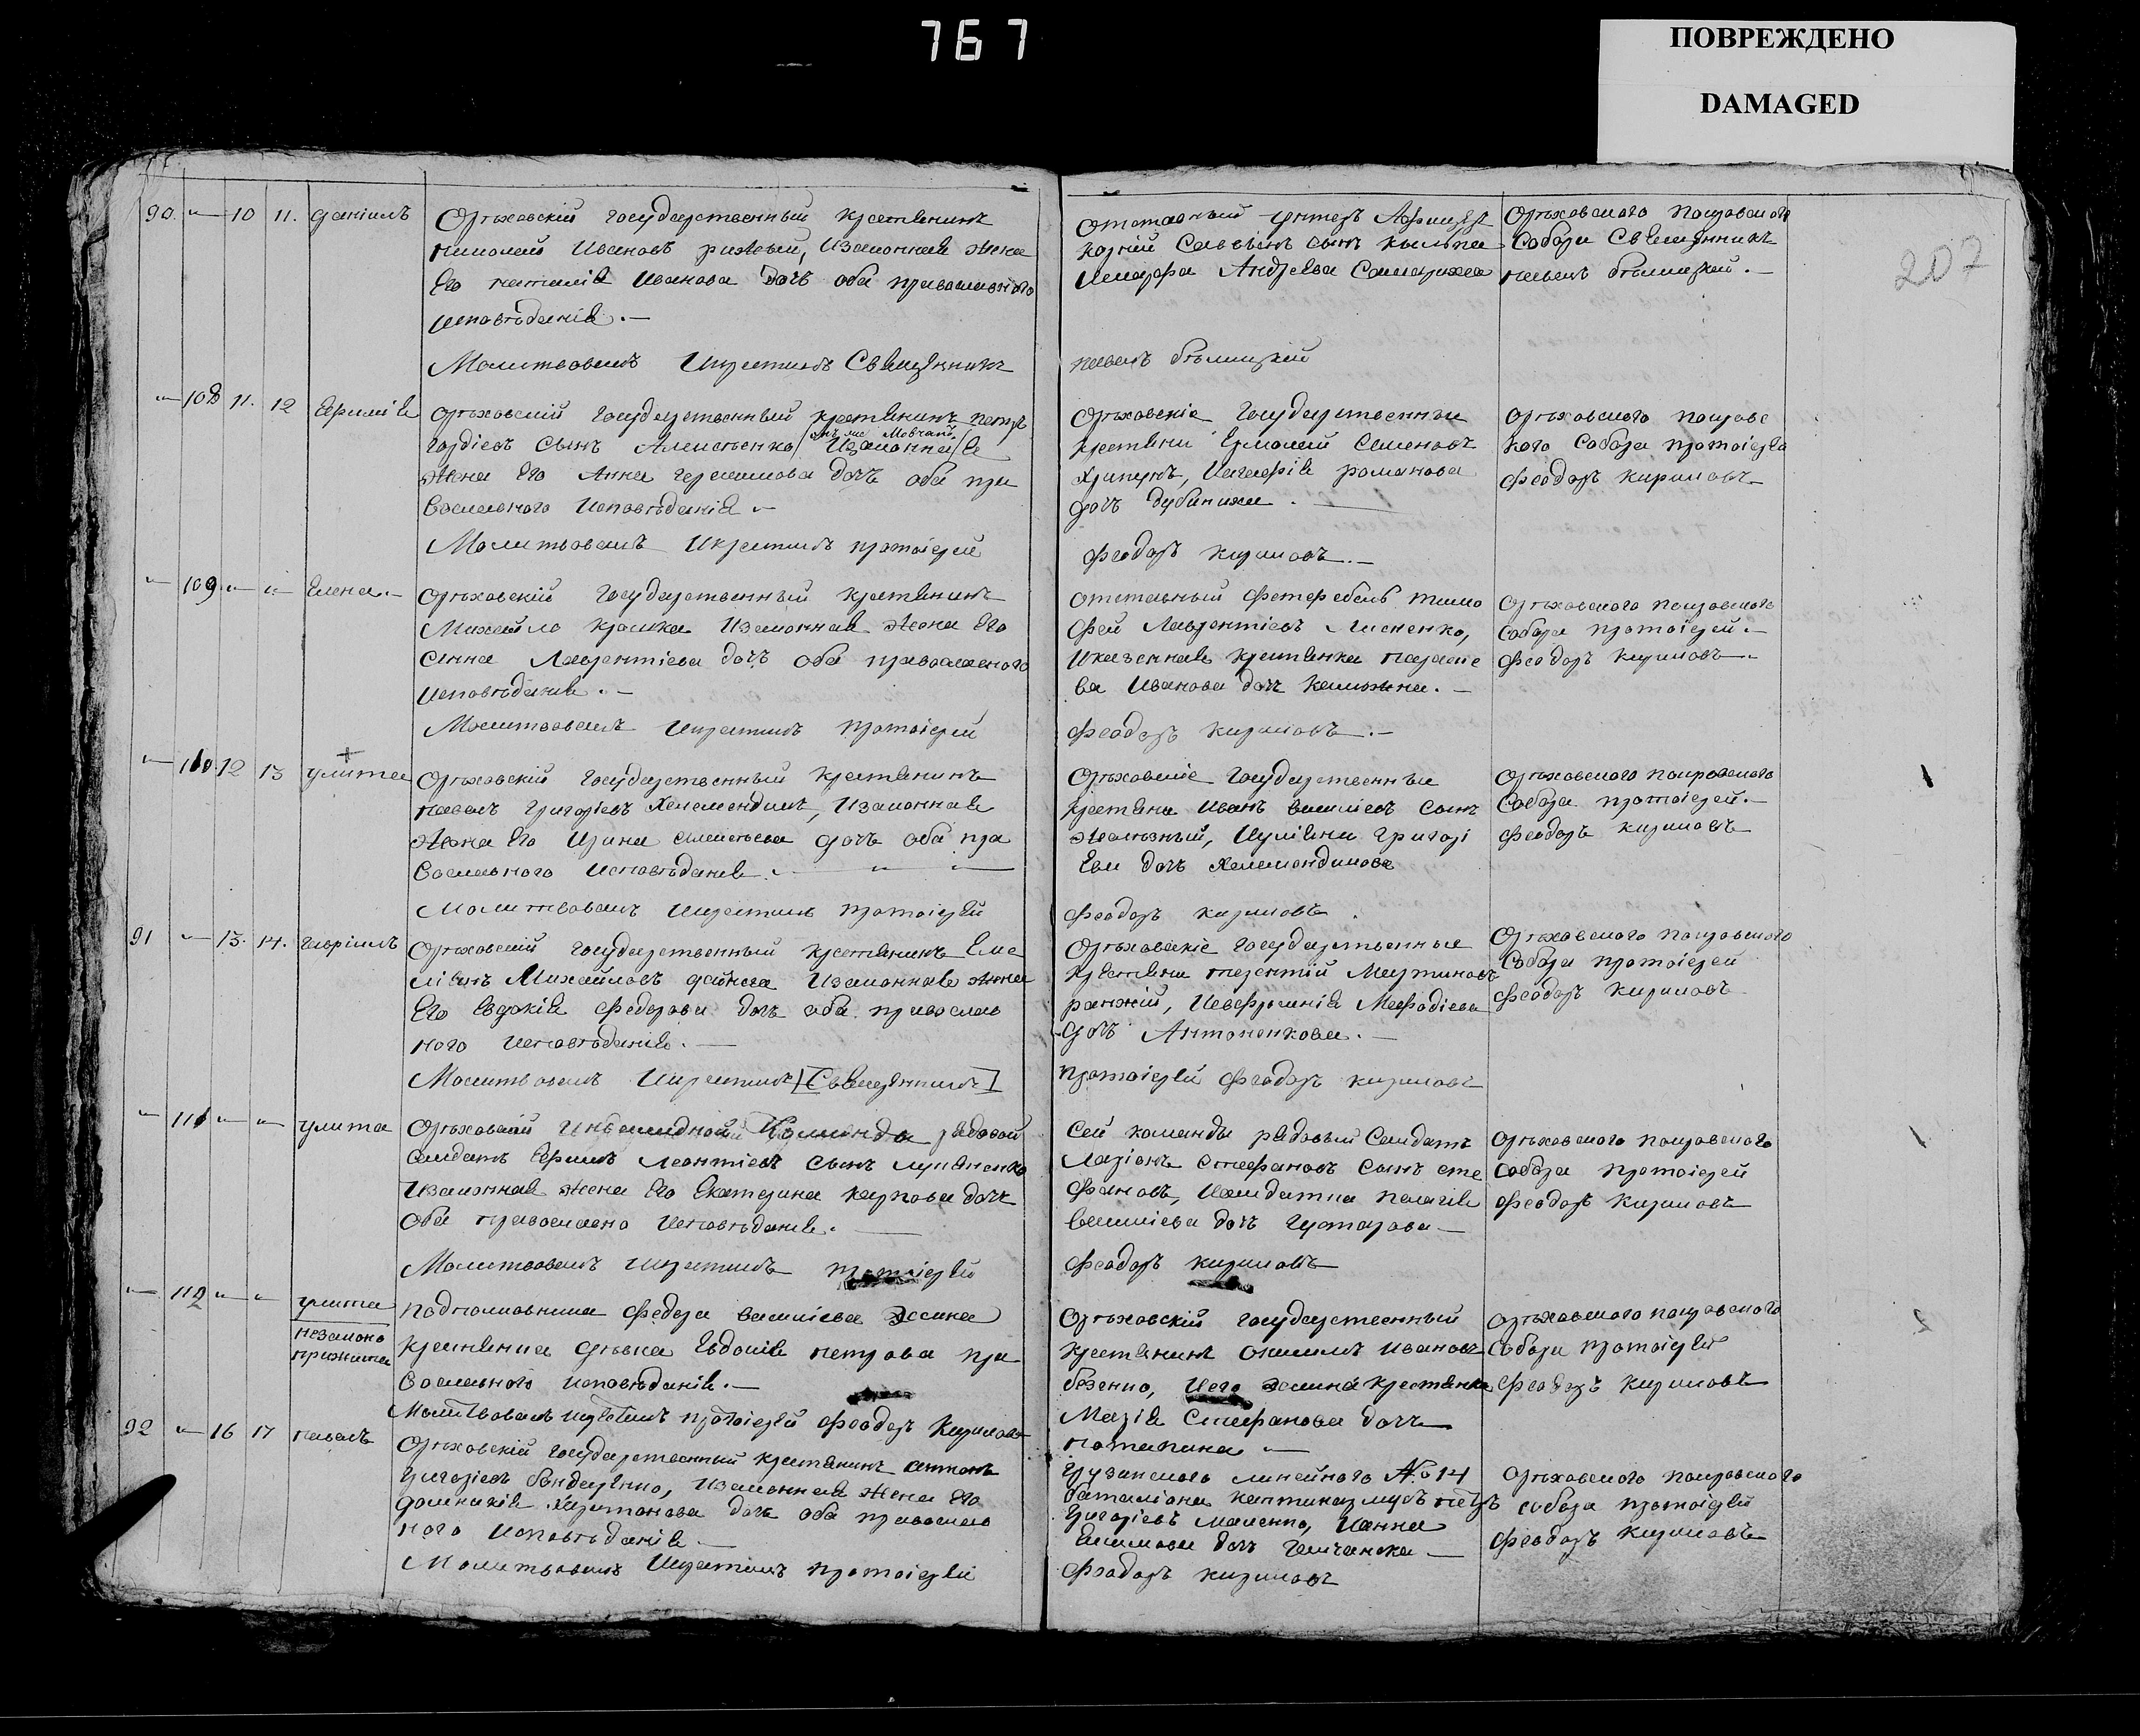 767
ПОВРЕЖДЕНО
DAMAGED
207
90. 10 11. Даніилъ
Орѣховскій государственный крестьянинъ
Николай Ивановъ рижый, Изаконная жена
Его наталія Иванова дочь оба православного
исповѣданія.
Молитвовалъ Икрестилъ Священникъ
Отставный унтеръ Афицеръ
Савельевъ сынъ
Андреева
Орѣховского покровского
Собора Священникъ
павелъ бѣлицкій.
павелъ бѣлицкій
108 11. 12 Ефимія
Орѣховскій государственный крестьянинъ петръ
гордіевъ сынъ Алексѣенко Изаконная
онъ же Мовчанъ
жена Его Анна герасимова дочь оба пра
вославного исповѣданія
Молитвовалъ Икрестилъ протоіерей
Орѣховскіе государственные
крестьяни Ермолай Семеновъ
Хрипунъ, Иагафія романова
дочь дубинина.
Феодоръ кириловъ.
Орѣховского покровс
кого Собора протоіерей
Феодоръ кириловъ
109 Елена.
Орѣховскій государственный крестьянинъ
Михайло крошка Изаконная жена Его
анна Лаврентіева дочь оба православного
исповѣданія.
Молитвовалъ Икрестилъ протоіерей
отставный фетфебель тимо
фей Лаврентіевъ Лисненко,
Иказенная крестьянка параске
ва Иванова дочь
Феодоръ кириловъ.
Орѣховского покровского
Собора протоіерей.
Феодоръ кириловъ
110 12 13 улита
Орѣховскій государственный крестьянинъ
павелъ григоріевъ Хелемендикъ, Изаконная
жена Его Ирина алексѣева дочь оба пра
вославного исповѣданія.
Молитвовалъ Икрестилъ протоіерей
Орѣховскіе государственные
крестьяни Иванъ василіевъ сынъ
желѣзный, Иуліяни григорі
ева дочь Хелемендикова
Феодоръ кириловъ
Орѣховского покровского
Собора протоіерей.
Феодоръ кириловъ
91 13. 14. гавріилъ
Орѣховскій государственный крестьянинъ Еме
ліянъ Михайловъ дейнега Изаконная жена
Его Евдокія федорова дочь оба православ
ного исповѣданія.
Молитвовалъ Икрестилъ [Священникъ]
Орѣховскіе государственные
крестьяни терентій Мартиновъ
ранжій, Иевфросинія Мефодіева
дочь Антоненкова.
протоіерей Феодоръ кириловъ
Орѣховского покровского
Собора протоіерей
Феодоръ кириловъ
111 улита
Орѣховской Инвалидной Команды рядовой
салдатъ Ефимъ Леонтіевъ сынъ лукяненко
Изаконная жена Его Екатерина карпова дочь
оба православно исповѣданія.
Молитвовалъ Икрестилъ протоіерей
Сей команды рядовый Салдатъ
Ларіонъ Стефановъ сынъ сте
фановъ, Исалдатка пелагія
василіева дочь
Феодоръ кириловъ
Орѣховского покровского
собора протоіерей
Феодоръ кириловъ
112 улита
незаконо
прижита
подполковника Федора василіева
крестьянка дѣвка Евдокія петрова пра
вославного исповѣданія.
Молитвовалъ икрестилъ протоіерей Феодоръ Кириловъ
Орѣховскій государственный
крестьянинъ Ивановъ
крестьянка
Марія Стефанова дочь
потапина
Орѣховского покровского
собора протоіерей
Феодоръ кириловъ
92 16 17 павелъ
Орѣховскій государственный крестьянинъ антонъ
григоріевъ бондаренко, Изаконная жена Его
домникія харитонова дочь оба православ
ного исповѣданія
Молитвовалъ Икрестилъ протоіерей
грузинского линейного №14
баталіона петръ
григоріевъ Ианна
дочь
Феодоръ кириловъ
Орѣховского покровского
собора протоіерей
Феодоръ кириловъ